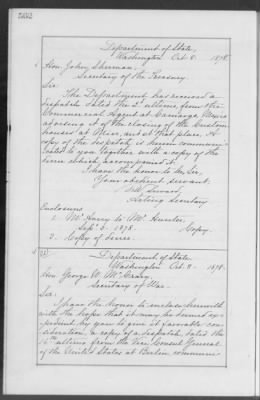 Department of State,
Washington Oct. 8. 1878.
Hon. John Sherman,
Secretary of the Treasury.
Sir:
The Department has received a
despatch dated the 2d ultimo, from the
Commercial Agent at Camargo, Mexico
advising it of the closing of the Custom
houses at Mier, and at that place. A
copy of the despatch is herewith communi-
cated to you together with a copy of the
decree which accompanied it.
I have the honor to be, Sir,
Your obedient servant.
Seward,
Acting Secretary
Enclosures
1. Mr. Haney to Mr. Hunter,
Sep. 2. 1878. Copy.
2. Copy of decree.
Department of State.
Washington Oct. 9. 1878.
Hon George W. McCrary.
Secretary of War.
Sir:
I have the honor to enclose herewith
with the hope that it may be deemed ex-
pedient by you to give it favorable con-
sideration, a copy of a despatch, dated the
16th ultimo from the Vice Consul General
of the United States at Berlin, commun-